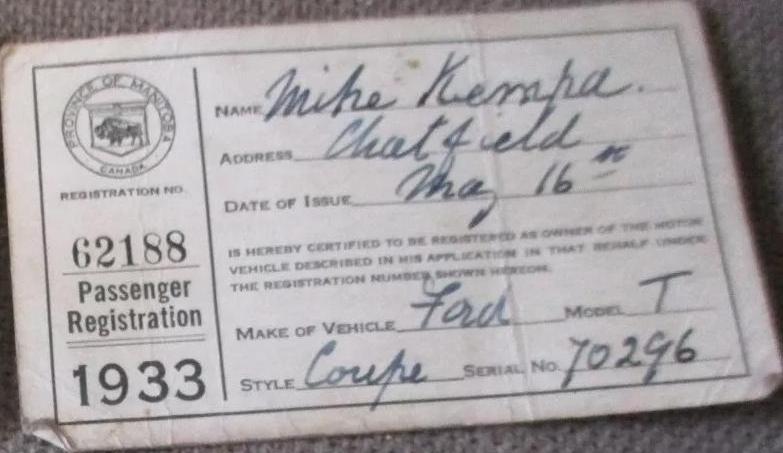 PROVINCE OF MANITOBA
CANADA
REGISTRATION NO.
62188
Passenger
Registration
1933
NAME Mike Kempa.
ADDRESS Chatfield
DATE OF ISSUE May 16th
IS HEREBY CERTIFIED TO BE REGISTERED AS OWNER OF THE MOTOR
VEHICLE DESCRIBED IN HIS APPLICATION IN THAT BEHALF UNDER
THE REGISTRATION NUMBER SHOWN HEREON.
MAKE OF VEHICLE Ford MODEL T
STYLE Coupe SERIAL NO. 70296